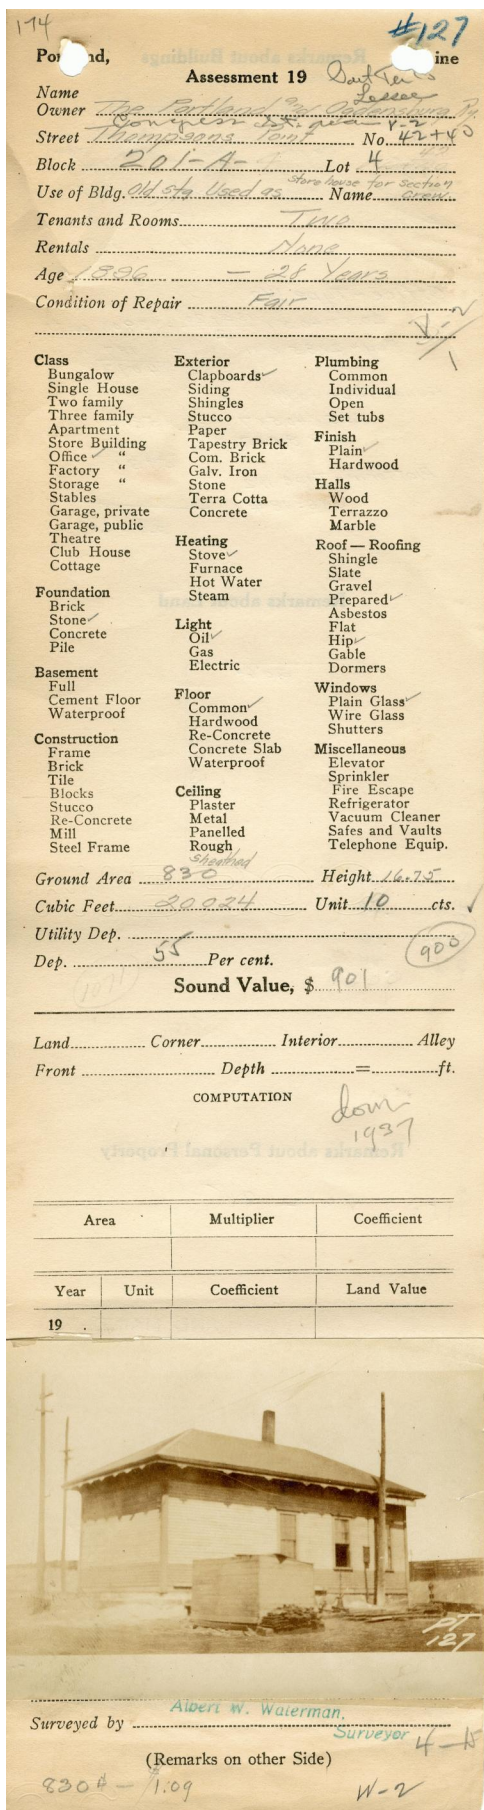 174
#127
Portland, Maine
Assessment 19
Name
Lessee
Owner The Portland and Ogdensburg Ry.
Congress St. near V-2
Street Thompsons Point No. 42+40
Block 201-A- Lot 4
Use of Bldg. Old stg. Used as store house for section Name crew.
Tenants and Rooms Two
Rentals None
Age 1896 - 28 Years
Condition of Repair Fair
V-2
1
Class
Bungalow
Single House
Two family
Three family
Apartment
Store Building
Office ✓ "
Factory "
Storage "
Stables
Garage, private
Garage, public
Theatre
Club House
Cottage
Foundation
Brick
Stone ✓
Concrete
Pile
Basement
Full
Cement Floor
Waterproof
Construction
Frame
Brick
Tile
Blocks
Stucco
Re-Concrete
Mill
Steel Frame
Exterior
Clapboards ✓
Siding
Shingles
Stucco
Paper
Tapestry Brick
Com. Brick
Galv. Iron
Stone
Terra Cotta
Concrete
Heating
Stove ✓
Furnace
Hot Water
Steam
Light
Oil ✓
Gas
Electric
Floor
Common ✓
Hardwood
Re-Concrete
Concrete Slab
Waterproof
Ceiling
Plaster
Metal
Panelled
Rough
Sheathed
Plumbing
Common
Individual
Open
Set tubs
Finish
Plain ✓
Hardwood
Halls
Wood
Terrazzo
Marble
Roof — Roofing
Shingle
Slate
Gravel
Prepared ✓
Asbestos
Flat
Hip ✓
Gable
Dormers
Windows
Plain Glass ✓
Wire Glass
Shutters
Miscellaneous
Elevator
Sprinkler
Fire Escape
Refrigerator
Vacuum Cleaner
Safes and Vaults
Telephone Equip.
Ground Area 830 Height 16.75
Cubic Feet 20024 Unit 10 cts. ✓
Utility Dep.
900
Dep. 55 Per cent.
Sound Value, $ 901
Land Corner Interior Alley
Front Depth = ft.
COMPUTATION
down
1937
Area Multiplier Coefficient
Year Unit Coefficient Land Value
19
PT
127
Albert W. Waterman,
Surveyed by Surveyor
4-15
(Remarks on other Side)
830 # - 1.09
W-2